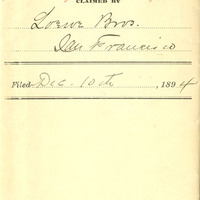 CLAIMED BY
Loewe Bros.
San Francisco
Filed Dec. 10th, 1894